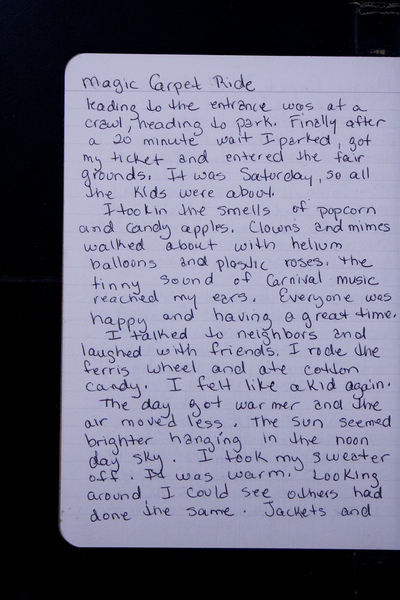 Magic Carpet Ride
leading to the entrance was at a
crawl, heading to park. Finally after
a 20 minute wait I parked, got
my ticket and entered the fair
grounds. It was Saturday, so all
the kids were about.
I took in the smells of popcorn
and candy apples. Clowns and mimes
walked about with helium
balloons and plastic roses. The
tinny sound of Carnival music
reached my ears. Everyone was
happy and having a great time.
I talked to neighbors and
laughed with friends. I rode the
ferris wheel and ate cotton
candy. I felt like a kid again.
The day got warmer and the
air moved less. The sun seemed
brighter hanging in the noon
day sky. I took my sweater
off. It was warm. Looking
around I could see others had
done the same. Jackets and